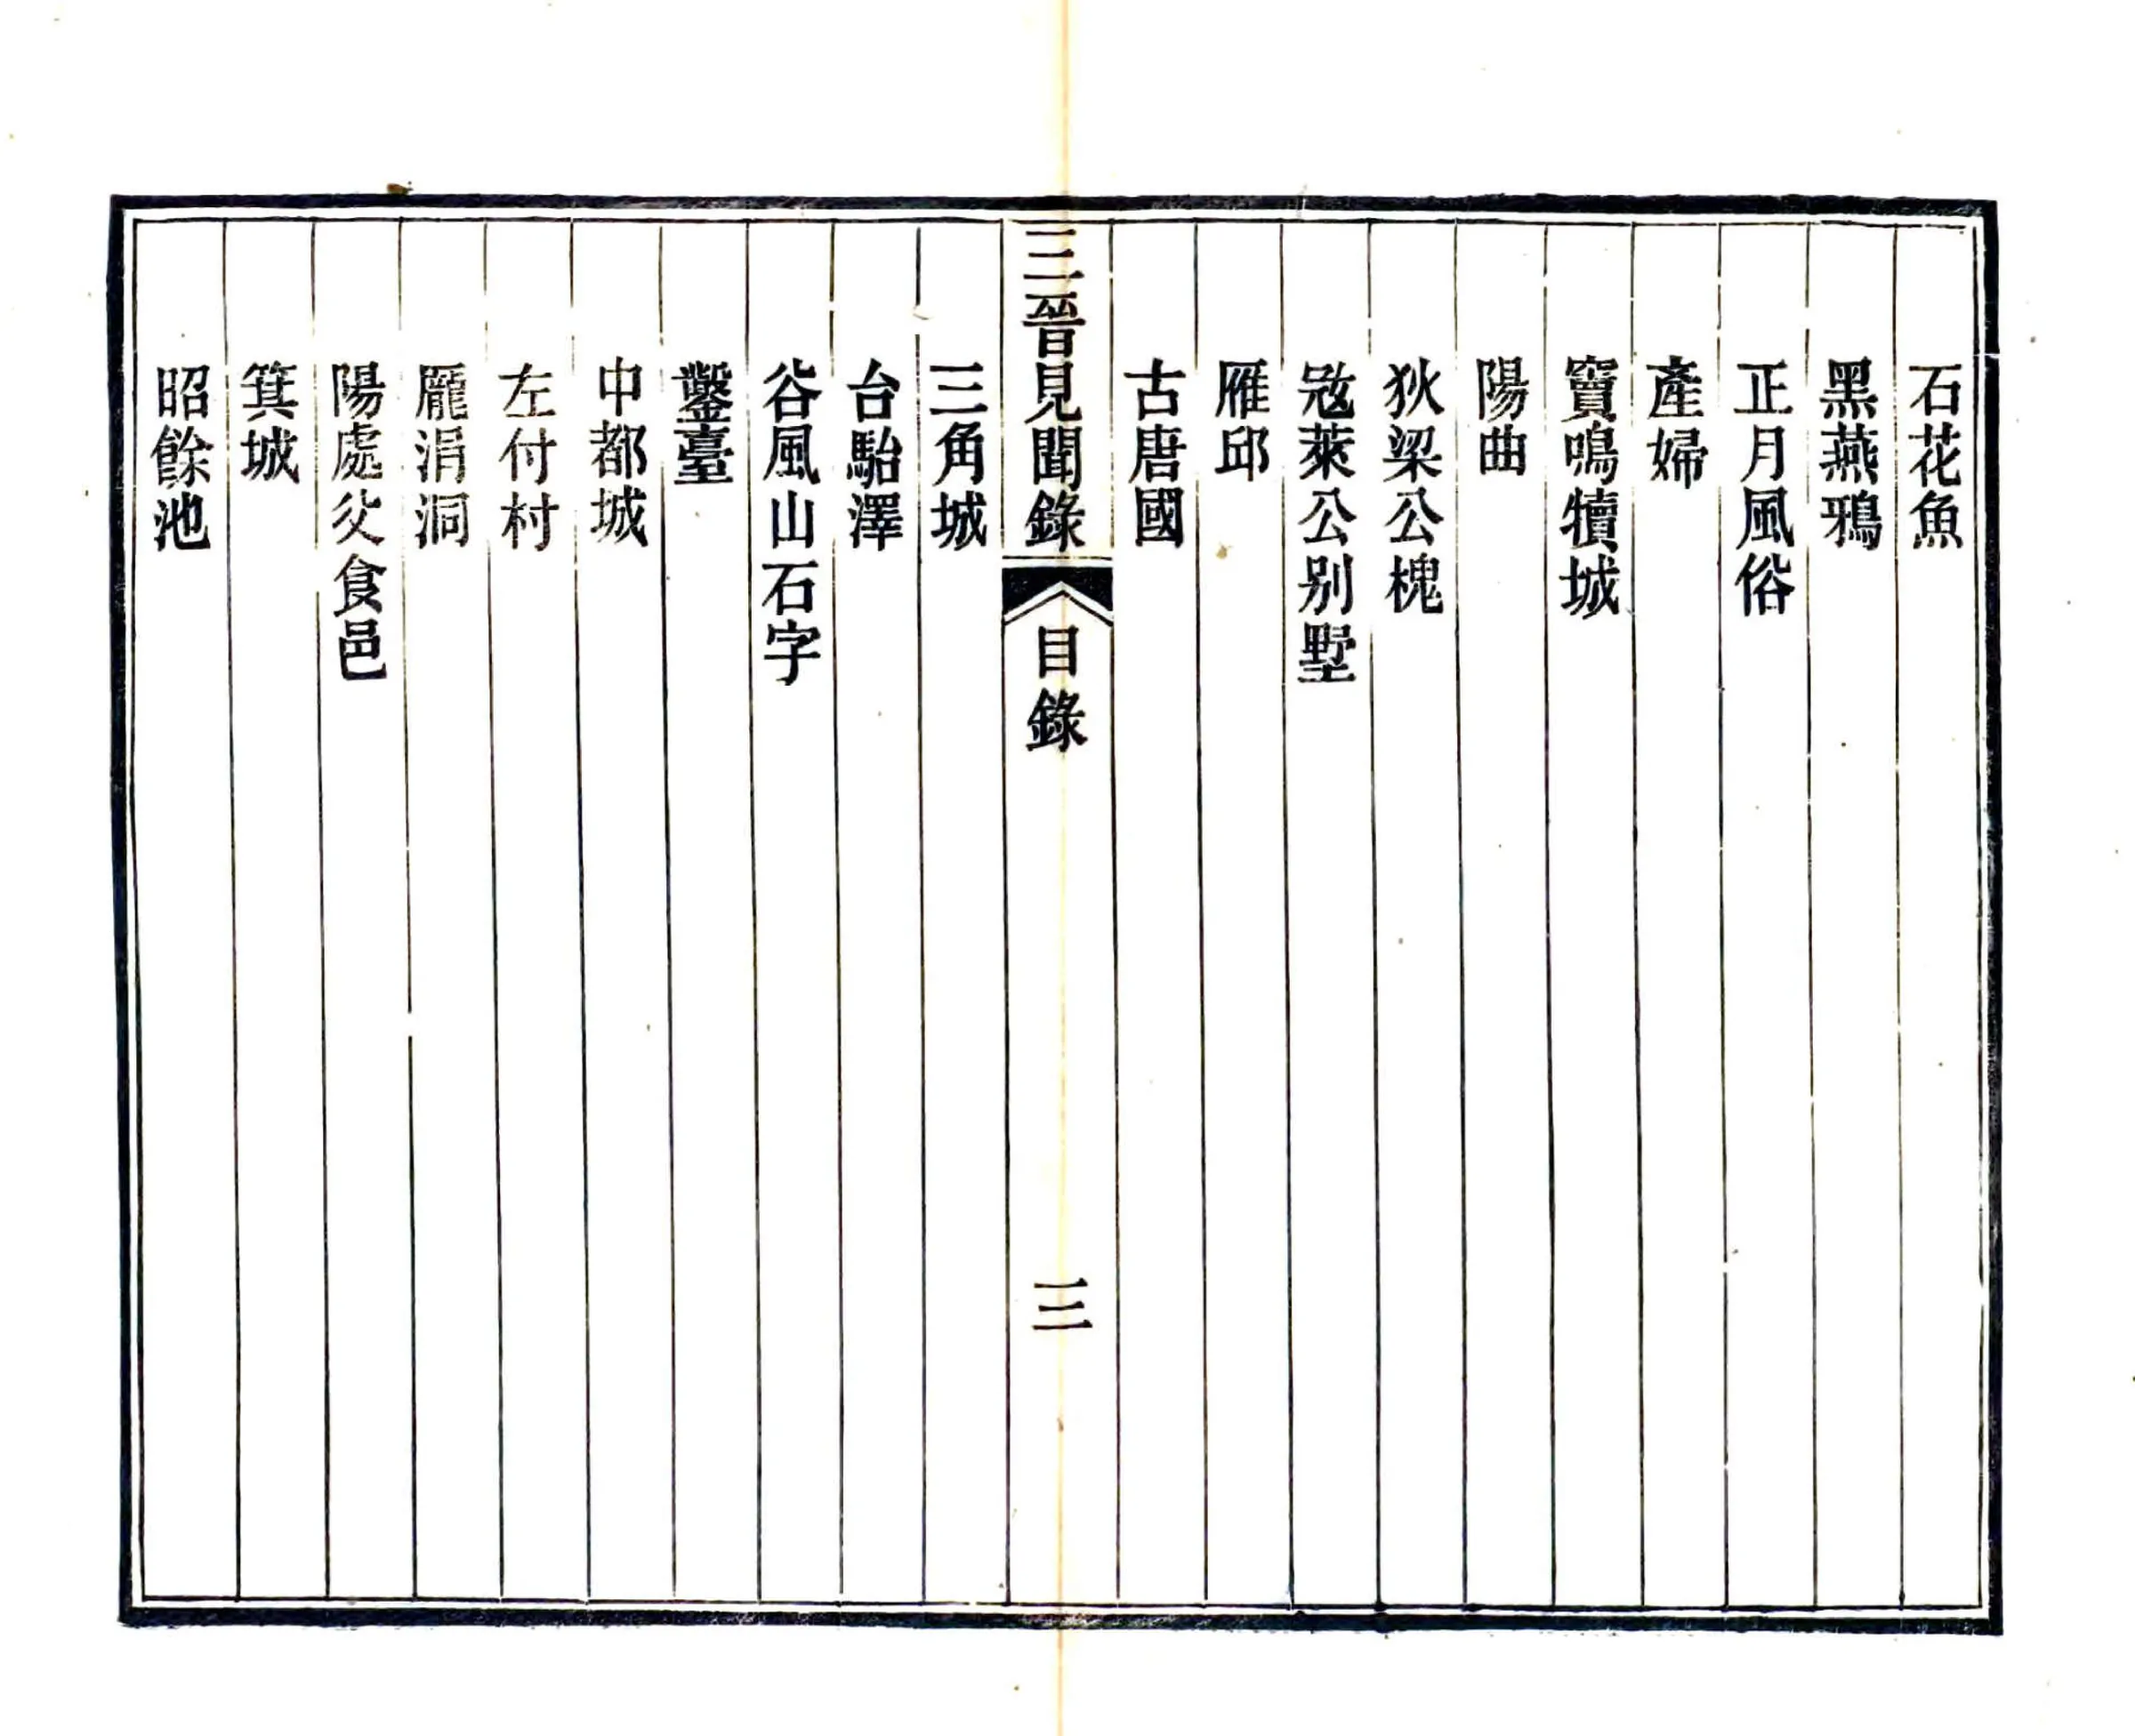 石花魚
黑燕鴉
正月風俗
產婦
竇鳴犢城
陽曲
狄梁公槐
寇萊公别墅
雁邱
古唐國
三晉見聞錄 目錄 三
三角城
台駘澤
谷風山石字
鑿臺
中都城
左付村
龎涓洞
陽處父食邑
箕城
昭餘池